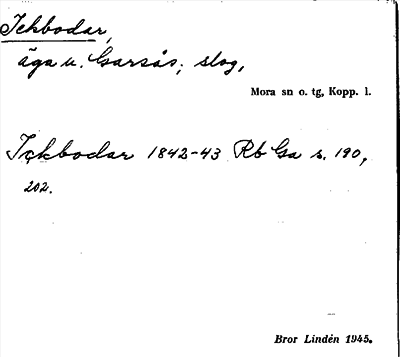 Ickbodar,
äga u. Garsås; slog,
Mora sn o. tg, Kopp. l.
Ickbodar 1842-43 Rb Ga s. 190,
202.
Bror Lindén 1945.